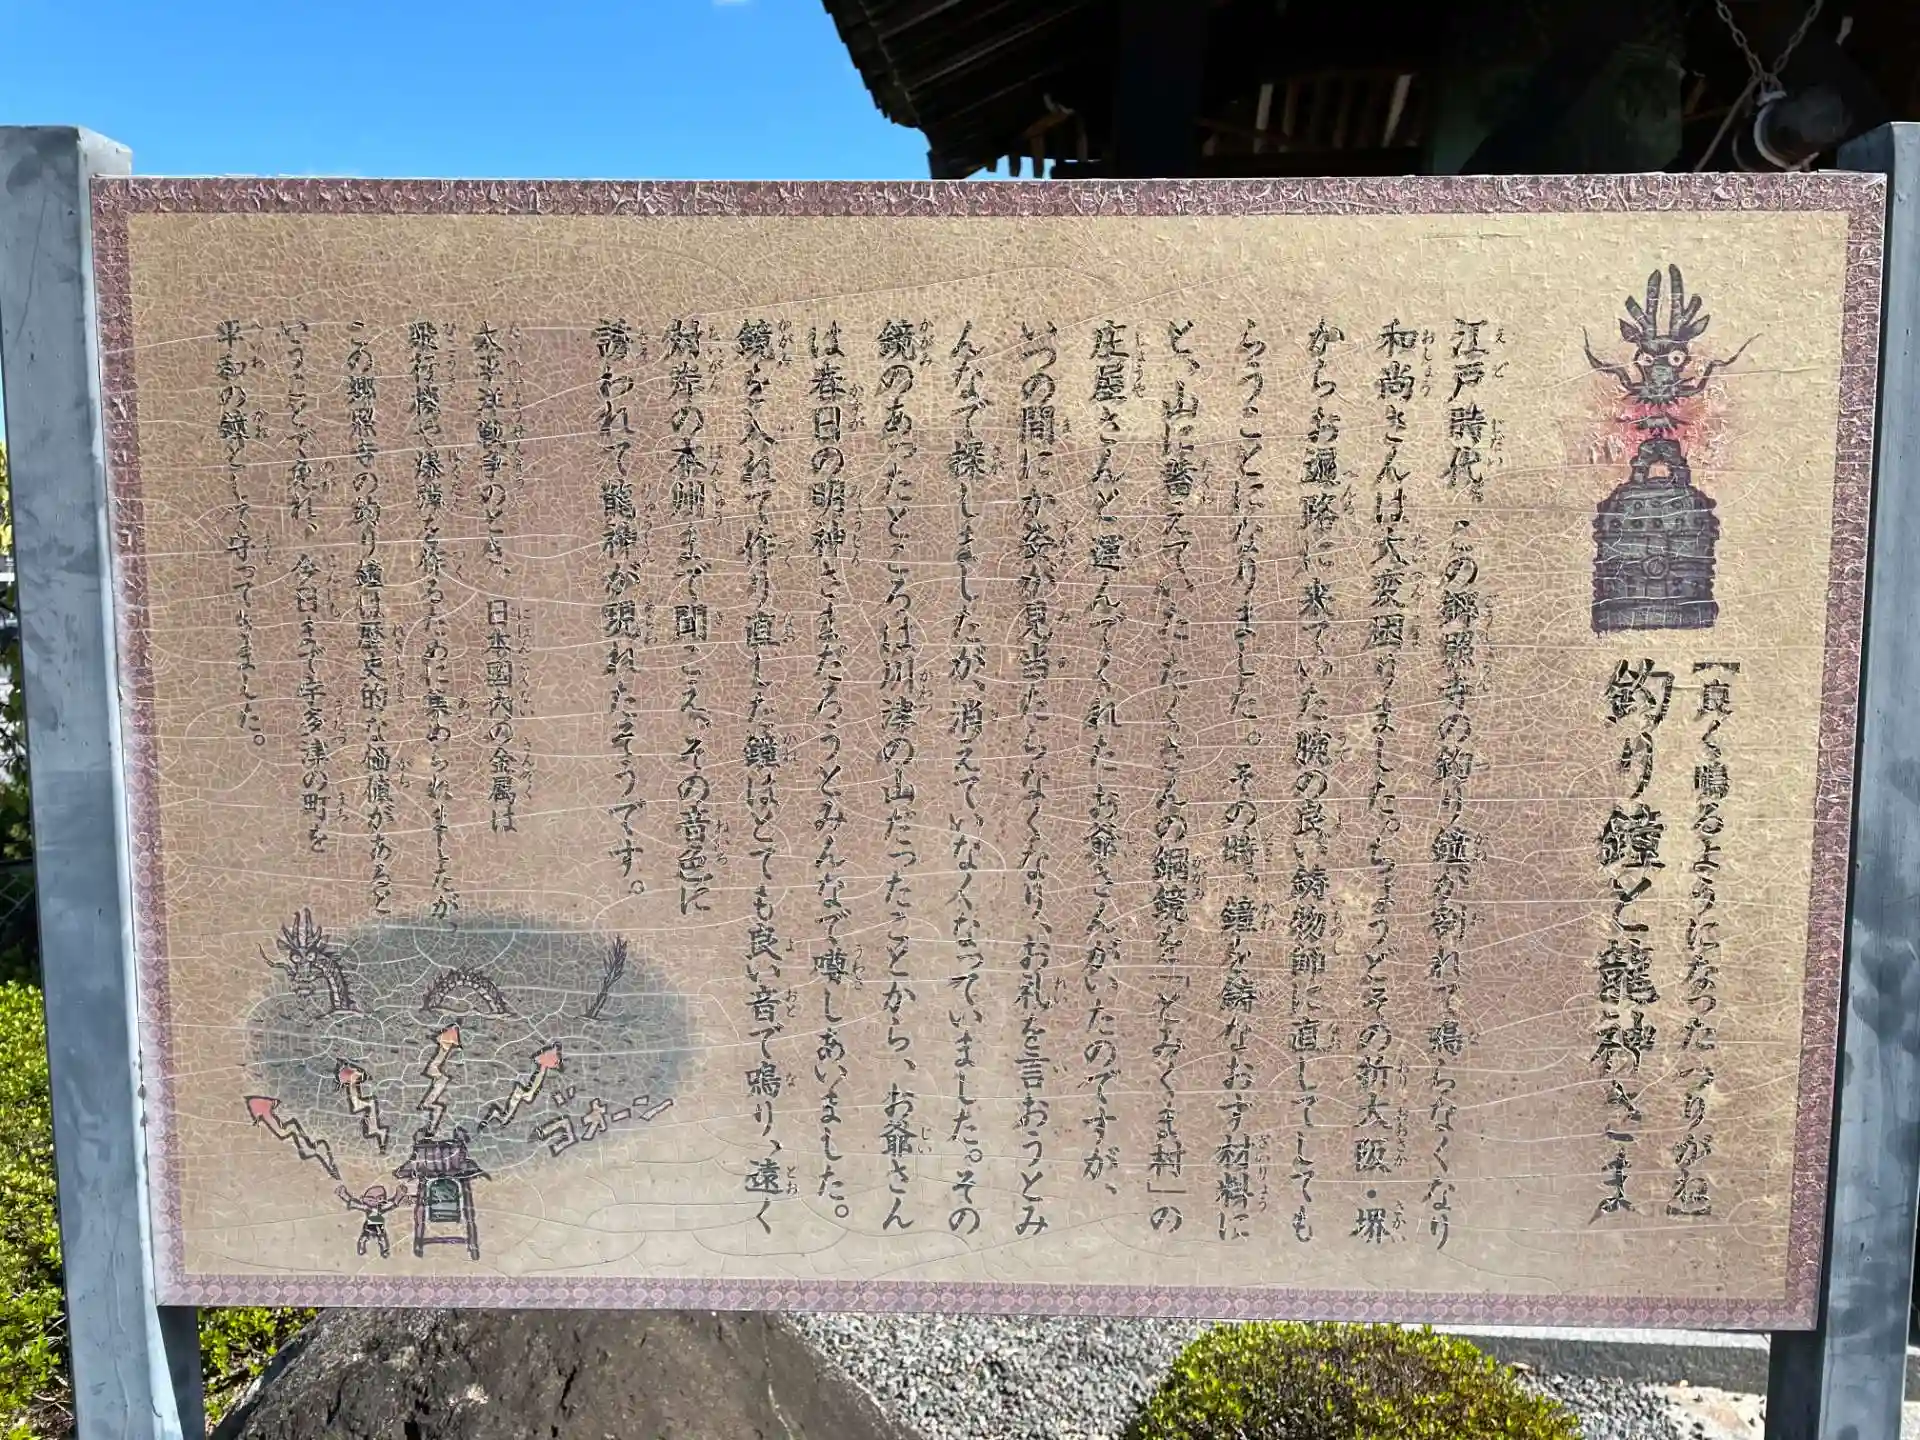 【良く鳴るようになったつりがね】
釣り鐘と龍神さま
江戸時代、この郷照寺の釣り鐘が割れて鳴らなくなり
和尚さんは大変困りました。ちょうどその折大阪・堺
からお遍路に来ていた腕の良い鋳物師に直してしても
らうことになりました。その時、鐘を鋳なおす材料に
と、山に蓄えていたたくさんの銅鏡を「とみくま村」の
庄屋さんと運んでくれたお爺さんがいたのですが、
いつの間にか姿が見当たらなくなり、お礼を言おうとみ
んなで探しましたが、消えていなくなっていました。その
鏡のあったところは川津の山だったことから、お爺さん
は春日の明神さまだろうとみんなで噂しあいました。
鏡を入れて作り直した鐘はとても良い音で鳴り、遠く
対岸の本州まで聞こえ、その音色に
誘われて龍神が現れたそうです。
太平洋戦争のとき、日本国内の金属は
飛行機や爆弾を作るために集められましたが、
この郷照寺の釣り鐘は歴史的な価値があると
いうことで免れ、今日まで宇多津の町を
平和の鐘として守って来ました。
ゴォーン